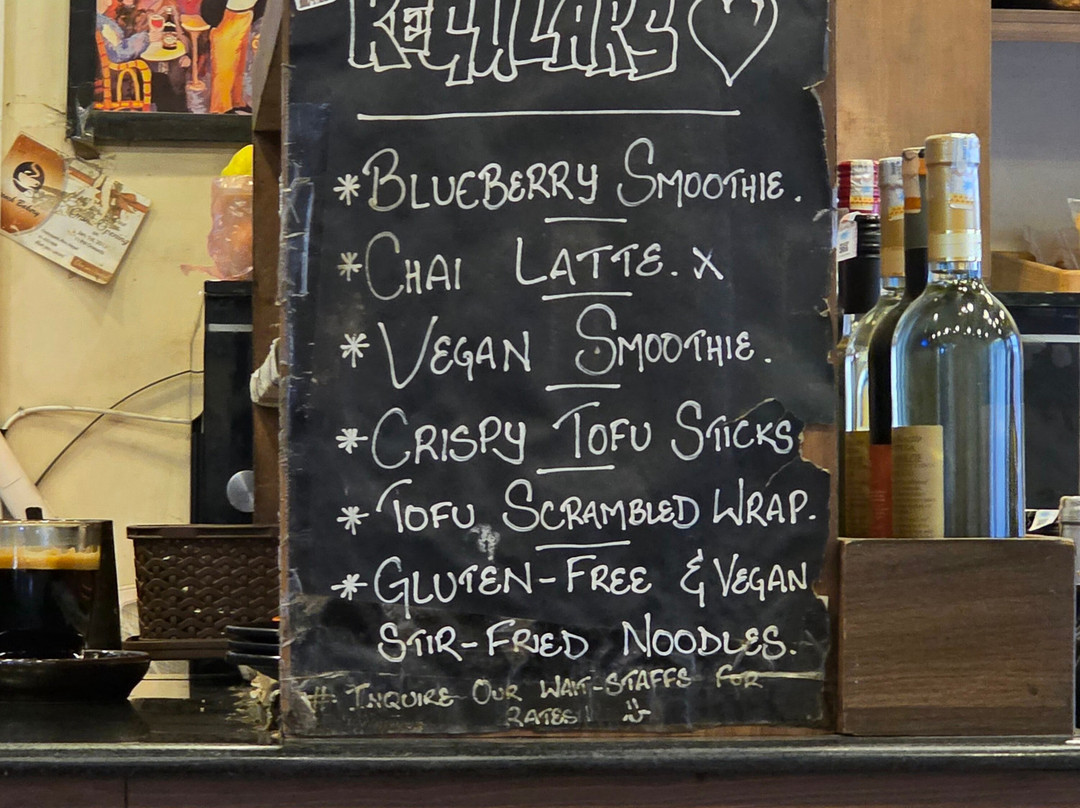 REGULARS
*BLUEBERRY SMOOTHIE.
*CHAI LATTE. x
*VEGAN SMOOTHIE.
*CRISPY TOFU STICKS
*TOFU SCRAMBLED WRAP.
*GLUTEN-FREE & VEGAN
STIR-FRIED NOODLES.
# INQUIRE OUR WAIT-STAFFS FOR
RATES!
Grand Opening